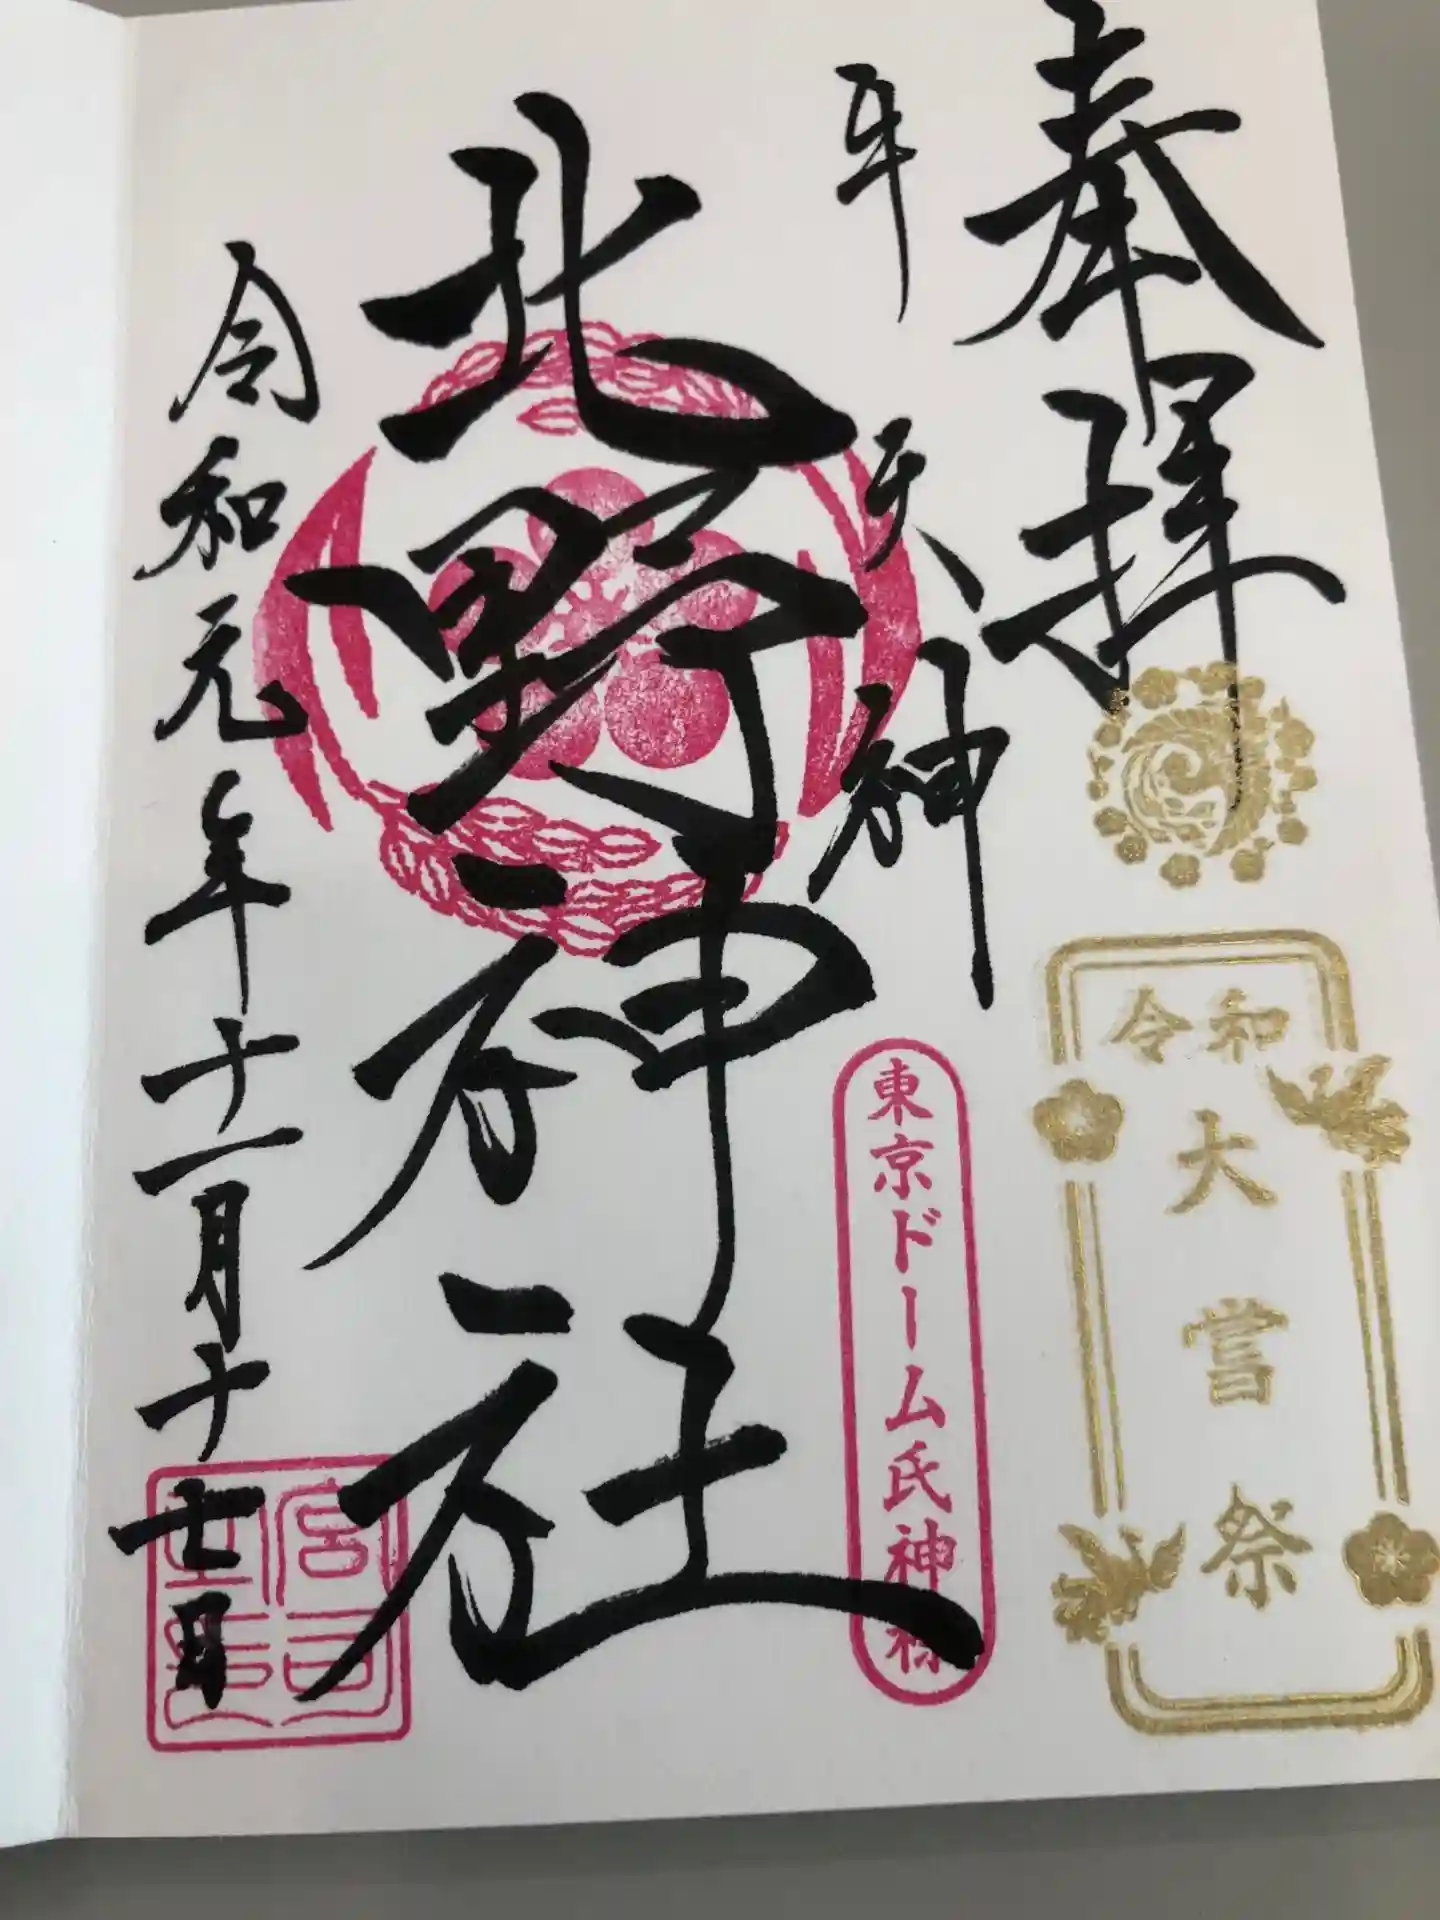 奉拝
令和
大嘗祭
牛天神
東京ドーム氏神様
北野神社
令和元年十一月十七日